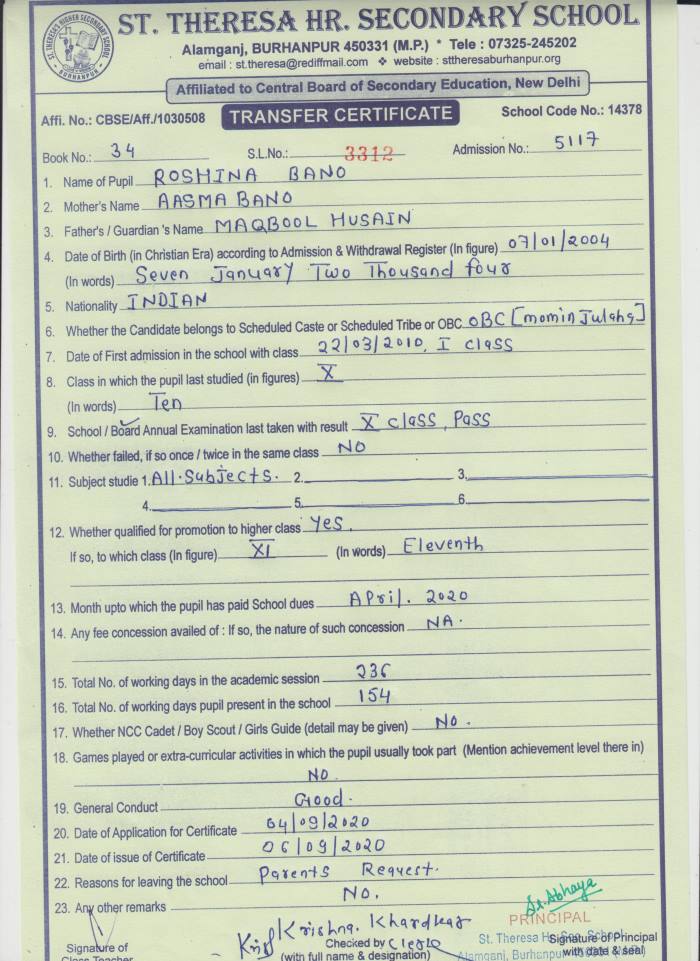 ST. THERESA'S HIGHER SECONDARY SCHOOL
BURHANPUR
ST. THERESA HR. SECONDARY SCHOOL
Alamganj, BURHANPUR 450331 (M.P.) * Tele : 07325-245202
email : st.theresa@rediffmail.com ❖ website : sttheresaburhanpur.org
Affiliated to Central Board of Secondary Education, New Delhi
Affi. No.: CBSE/Aff./1030508 TRANSFER CERTIFICATE School Code No.: 14378
Book No.: 34 S.L.No.: 3312 Admission No.: 5117
1. Name of Pupil ROSHINA BANO
2. Mother's Name AASMA BANO
3. Father's / Guardian 's Name MAQBOOL HUSAIN
4. Date of Birth (in Christian Era) according to Admission & Withdrawal Register (In figure) 07/01/2004
(In words) Seven January Two Thousand four
5. Nationality INDIAN
6. Whether the Candidate belongs to Scheduled Caste or Scheduled Tribe or OBC OBC [momin Julaha]
7. Date of First admission in the school with class 22/03/2010, I class
8. Class in which the pupil last studied (in figures) X
(In words) Ten
9. School / Board Annual Examination last taken with result X class, Pass
10. Whether failed, if so once / twice in the same class NO
11. Subject studie 1. All. Subjects. 2. 3.
4. 5. 6.
12. Whether qualified for promotion to higher class Yes.
If so, to which class (In figure) XI (In words) Eleventh
13. Month upto which the pupil has paid School dues April. 2020
14. Any fee concession availed of : If so, the nature of such concession NA.
15. Total No. of working days in the academic session 236
16. Total No. of working days pupil present in the school 154
17. Whether NCC Cadet / Boy Scout / Girls Guide (detail may be given) No.
18. Games played or extra-curricular activities in which the pupil usually took part (Mention achievement level there in)
NO
19. General Conduct Good.
20. Date of Application for Certificate 04/09/2020
21. Date of issue of Certificate 06/09/2020
22. Reasons for leaving the school Parents Request.
23. Any other remarks No.
Sr. Abhaya
Krishna. Khardkar PRINCIPAL
Signature of Checked by Clerk St. Theresa Hr. Sec. School Signature of Principal
Class Teacher (with full name & designation) Alamganj, Burhanpur with date & seal